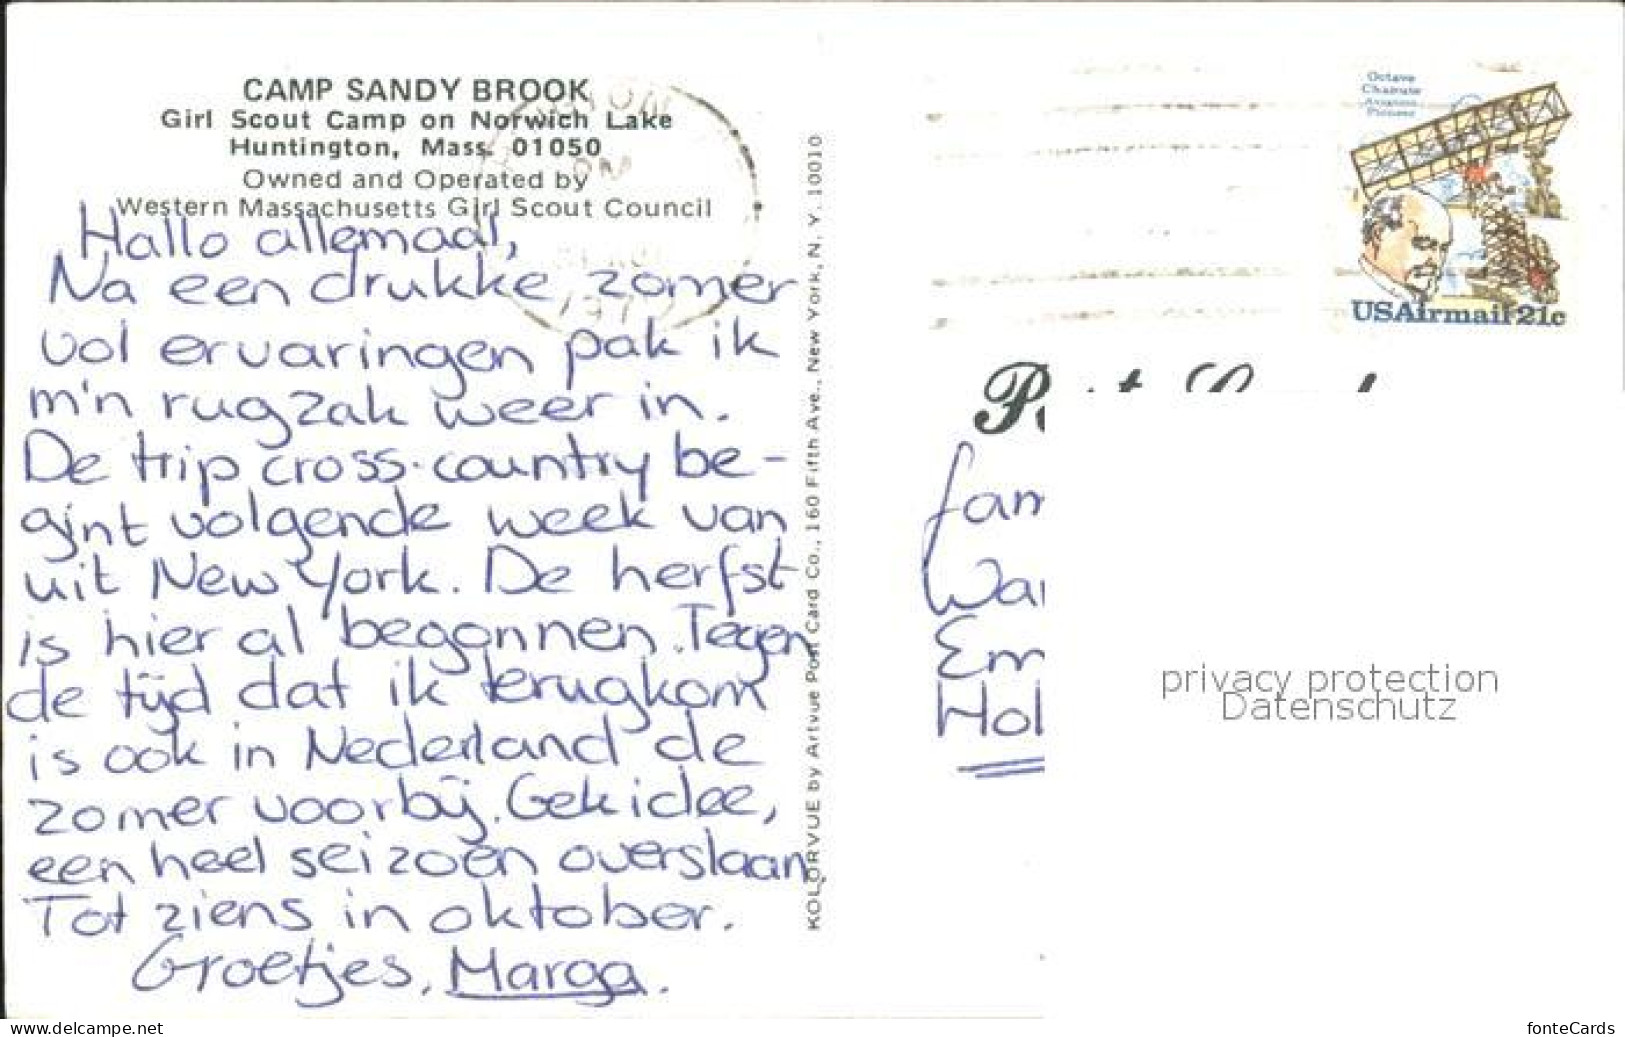 CAMP SANDY BROOK
Girl Scout Camp on Norwich Lake
Huntington, Mass. 01050
Owned and Operated by
Western Massachusetts Girl Scout Council
Hallo allemaal,
Na een drukke zomer
vol ervaringen pak ik
m'n rugzak weer in.
De trip cross-country be-
gint volgende week van
uit New York. De herfst
is hier al begonnen. Tegen
de tijd dat ik terugkom
is ook in Nederland de
zomer voorbij. Gek idee,
een heel seizoen overslaan.
Tot ziens in oktober.
Groetjes, Marga.
KOLORVUE by Artvue Post Card Co., 160 Fifth Ave., New York, N. Y. 10010
PM
Octave
Chanute
Aviation
Pioneer
USAirmail 21c
fam
privacy protection
Datenschutz
www.delcampe.net
fonteCards